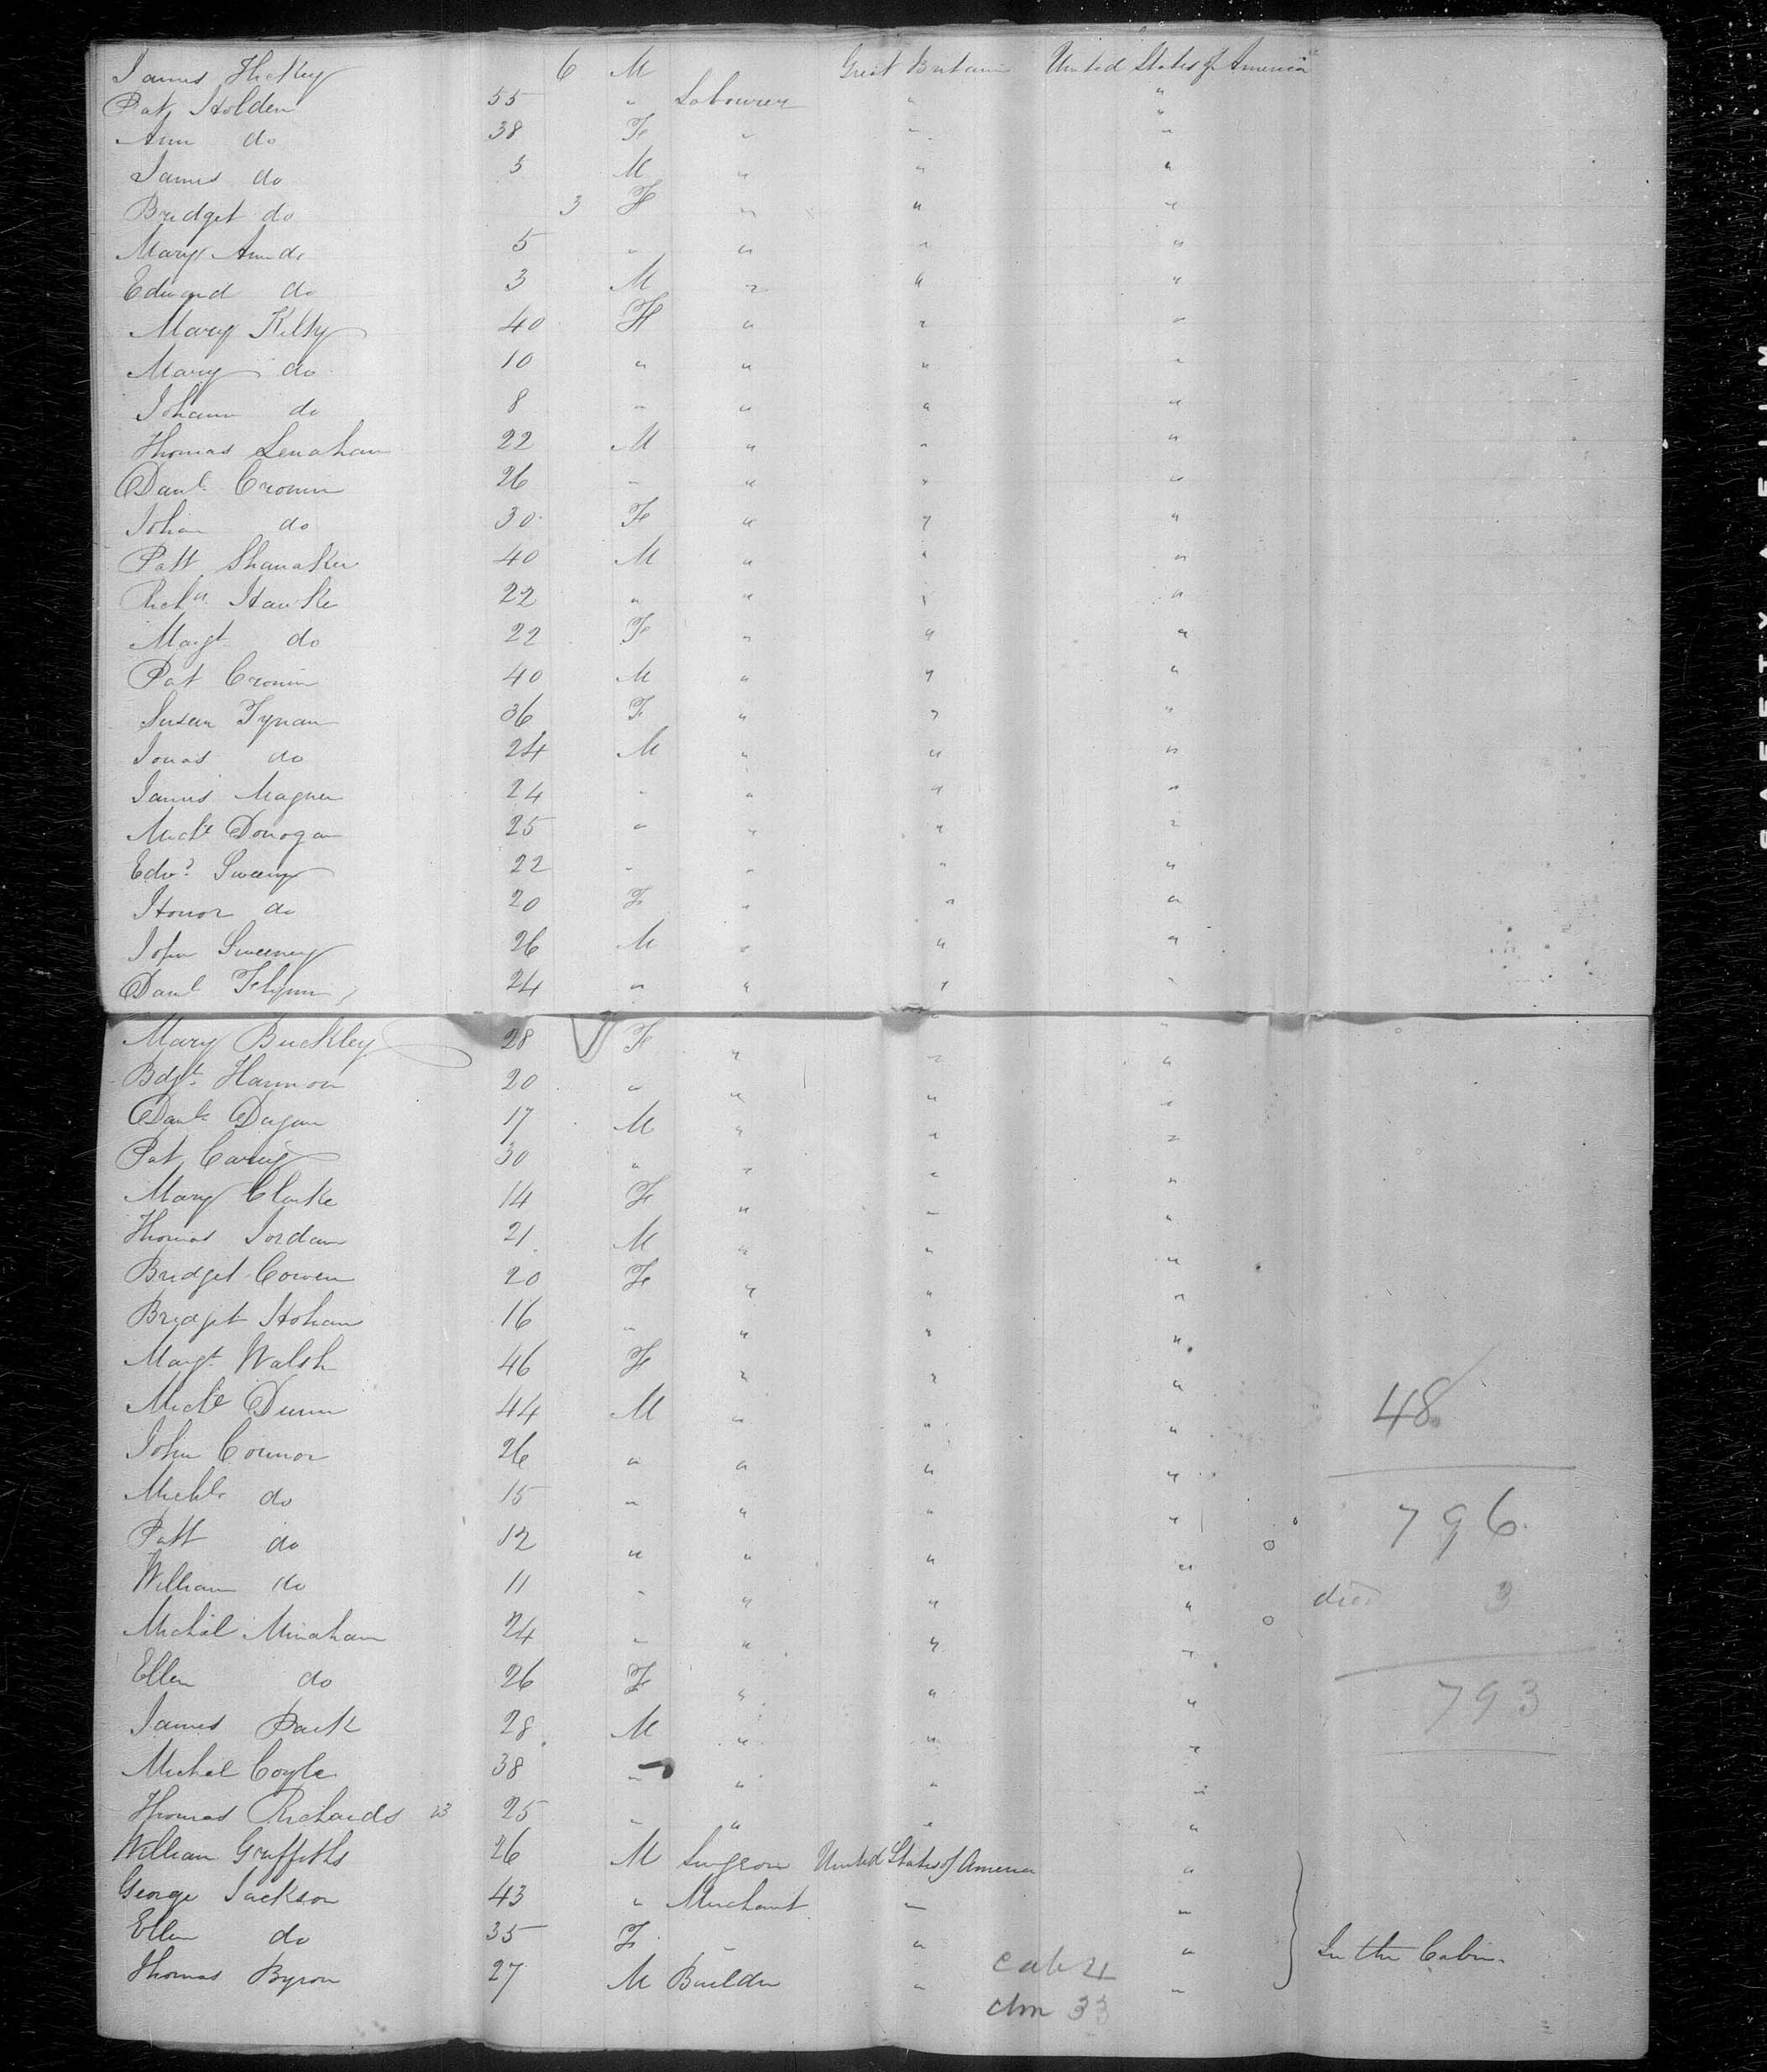 James Hickey 6 M Great Britain United States of America
Pat Holden 55 " Labourer " "
Ann do 38 F " " "
James do 5 M " " "
Bridget do 3 F " " "
Mary Ann do 5 " " " "
Edward do 3 M " " "
Mary Kelly 40 F " " "
Mary do 10 " " " "
Johann do 8 " " " "
Thomas Lenahan 22 M " " "
Danl Cronin 26 " " " "
Johan do 30 F " " "
Patt Shanaker 40 M " " "
Richd Hawke 22 " " " "
Margt do 22 F " " "
Pat Cronin 40 M " " "
Susan Tynan 36 F " " "
Jonas do 24 M " " "
James Magner 24 " " " "
Michl Donogan 25 " " " "
Edwd Sweeny 22 " " " "
Honor do 20 F " " "
John Sweeney 26 M " " "
Danl Flynn 24 " " " "
Mary Buckley 28 F " " "
Bdgt Hannon 20 " " " "
Danl Dugan 17 M " " "
Pat Carey 30 " " " "
Mary Clarke 14 F " " "
Thomas Jordan 21 M " " "
Bridget Cowen 20 F " " "
Bridget Hohan 16 " " " "
Margt Walsh 46 F " " "
Michl Dunn 44 M " " "
48
John Connor 26 " " " "
Michl do 15 " " " "
796
Patt do 12 " " " "
William do 11 " " " "
died 3
Michal Minahan 24 " " " "
Ellen do 26 F " " "
793
James Park 28 M " " "
Michel Coyle 38 " " " "
Thomas Richards 23 25 " " " "
William Griffiths 26 M Surgeon United States of America "
George Jackson 43 " Merchant " "
Ellen do 35 F " " "
In the Cabin
Thomas Byron 27 M Builder " "
cab 4
chn 33
SAFETY FILM